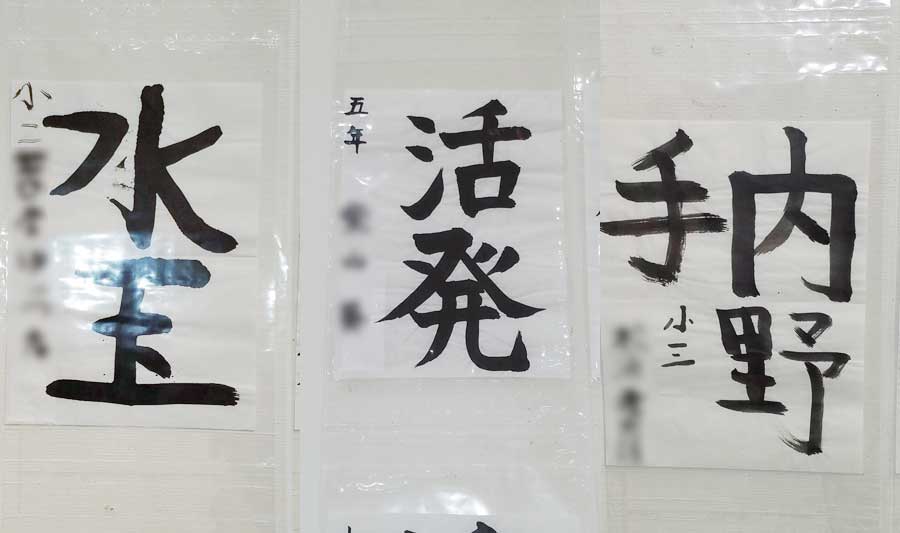 水玉
小二
活発
五年
内野
手
小三